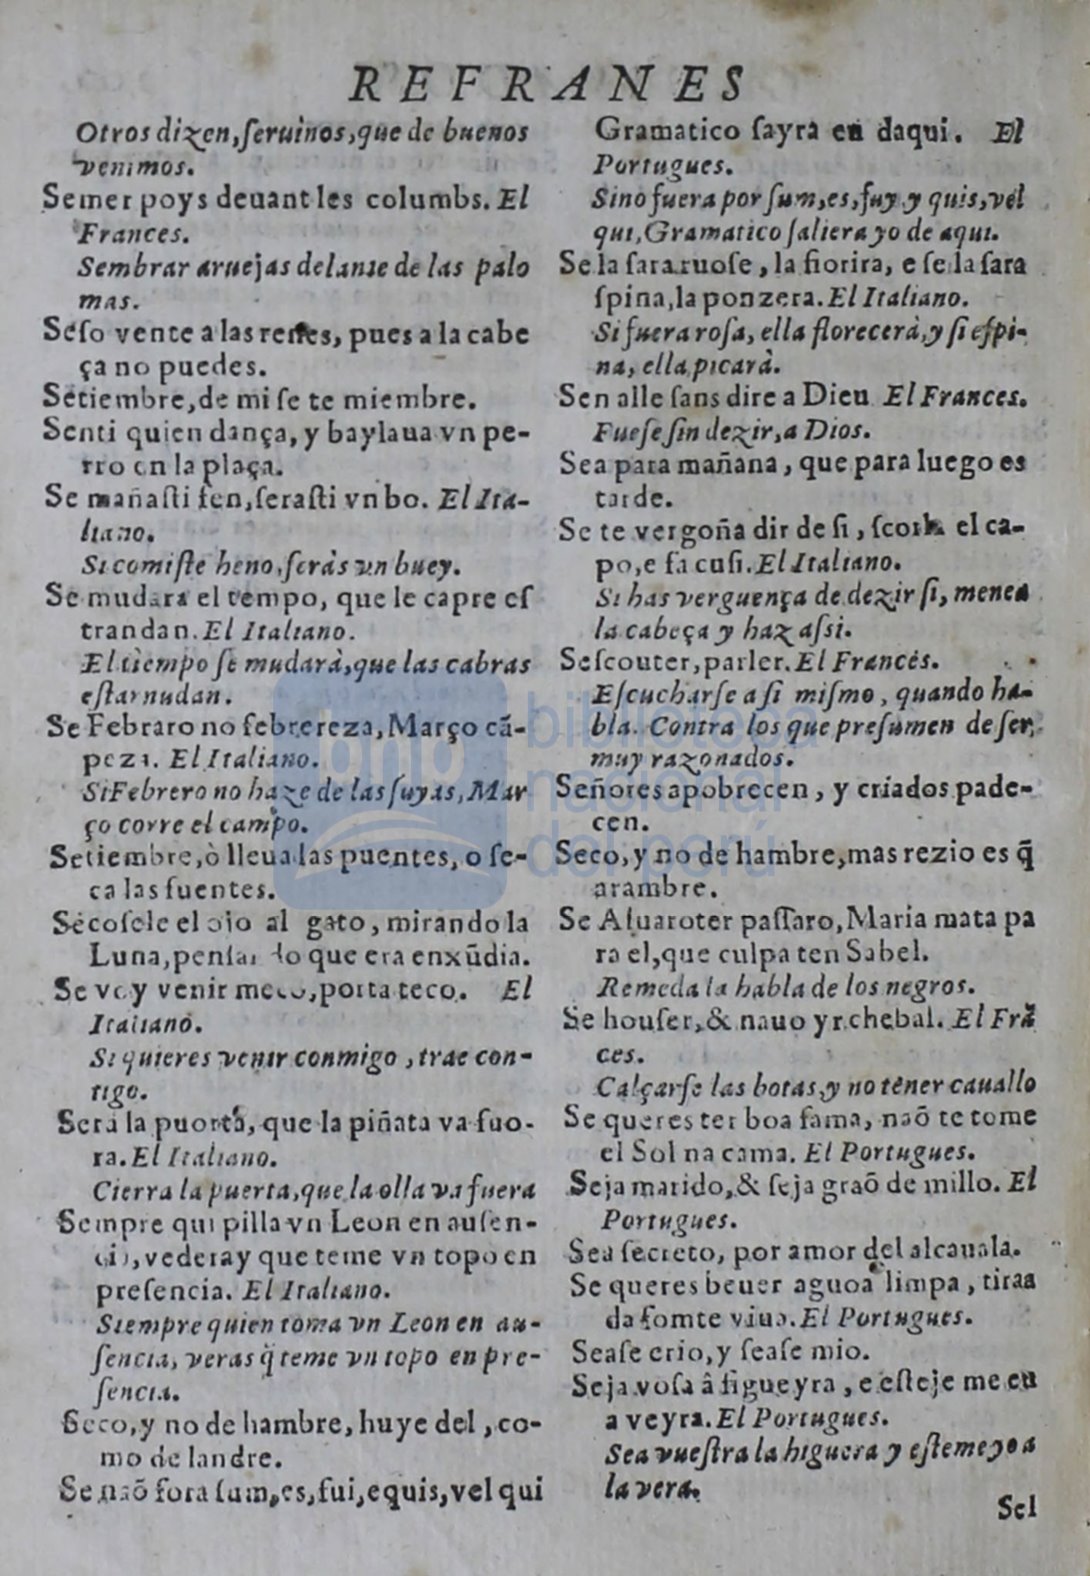 REFRANES
Otros dizen, ſeruinos, que de buenos
venimos.
Semer poys deuant les columbs. El
Frances.
Sembrar aruejas delante de las palo
mas.
Seſo vente a las renes, pues a la cabe
ça no puedes.
Setiembre, de mi ſe te miembre.
Senti quien dança, y baylaua vn pe-
rro en la plaça.
Se mañaſti fen, ſeraſti vn bo. El Ita-
liano.
Si comiſte heno, ſeràs vn buey.
Se mudara el tempo, que le capre eſ
trandan. El Italiano.
El tiempo ſe mudarà, que las cabras
eſtarnudan.
Se Febraro no febrereza, Março cã-
peza. El Italiano.
Si Febrero no haze de las ſuyas, Mar
ço corre el campo.
Setiembre, ò lleua las puentes, o ſe-
ca las fuentes.
Secoſele el ojo al gato, mirando la
Luna, penſando que era enxũdia.
Se voy venir meco, porta teco. El
Italiano.
Si quieres venir conmigo, trae con-
tigo.
Sera la puorta, que la piñata va fuo-
ra. El Italiano.
Cierra la puerta, que la olla va fuera
Sempre qui pilla vn Leon en auſen-
cia, vederay que teme vn topo en
preſencia. El Italiano.
Siempre quien toma vn Leon en au-
ſencia, veras q̃ teme vn topo en pre-
ſencia.
Seco, y no de hambre, huye del, co-
mo de landre.
Se naõ fora ſum, es, fui, e quis, vel qui
Gramatico ſayra en daqui. El
Portugues.
Sino fuera por ſum, es, fuy, y quis, vel
qui, Gramatico ſaliera yo de aqui.
Se la ſara ruoſe, la fiorira, e ſe la ſara
ſpina, la ponzera. El Italiano.
Si fuera roſa, ella florecerà, y ſi eſpi-
na, ella picarà.
Sen alle ſans dire a Dieu El Frances.
Fueſe ſin dezir, a Dios.
Sea para mañana, que para luego es
tarde.
Se te vergoña dir de ſi, ſcorla el ca-
po, e fa cuſi. El Italiano.
Si has verguença de dezir ſi, menea
la cabeça y haz aſsi.
Seſcouter, parler. El Francés.
Eſcucharſe a ſi miſmo, quando ha-
bla. Contra los que preſumen de ſer
muy razonados.
Señores apobrecen, y criados pade-
cen.
Seco, y no de hambre, mas rezio es q̃
arambre.
Se Aluaroter paſſaro, Maria mata pa
ra el, que culpa ten Sabel.
Remeda la habla de los negros.
Se houſer, & nauo yr chebal. El Frã
ces.
Calçarſe las botas, y no tener cauallo
Se queres ter boa fama, naõ te tome
el Sol na cama. El Portugues.
Seja marido, & ſeja graõ de millo. El
Portugues.
Sea ſecreto, por amor del alcauala.
Se queres beuer aguoa limpa, tiraa
da fomte viua. El Portugues.
Seaſe erio, y ſeaſe mio.
Seja voſa â figueyra, e eſteje me eu
a veyra. El Portugues.
Sea vueſtra la higuera y eſteme yo a
la vera.
Sel
biblioteca
nacional
del perú
bnp